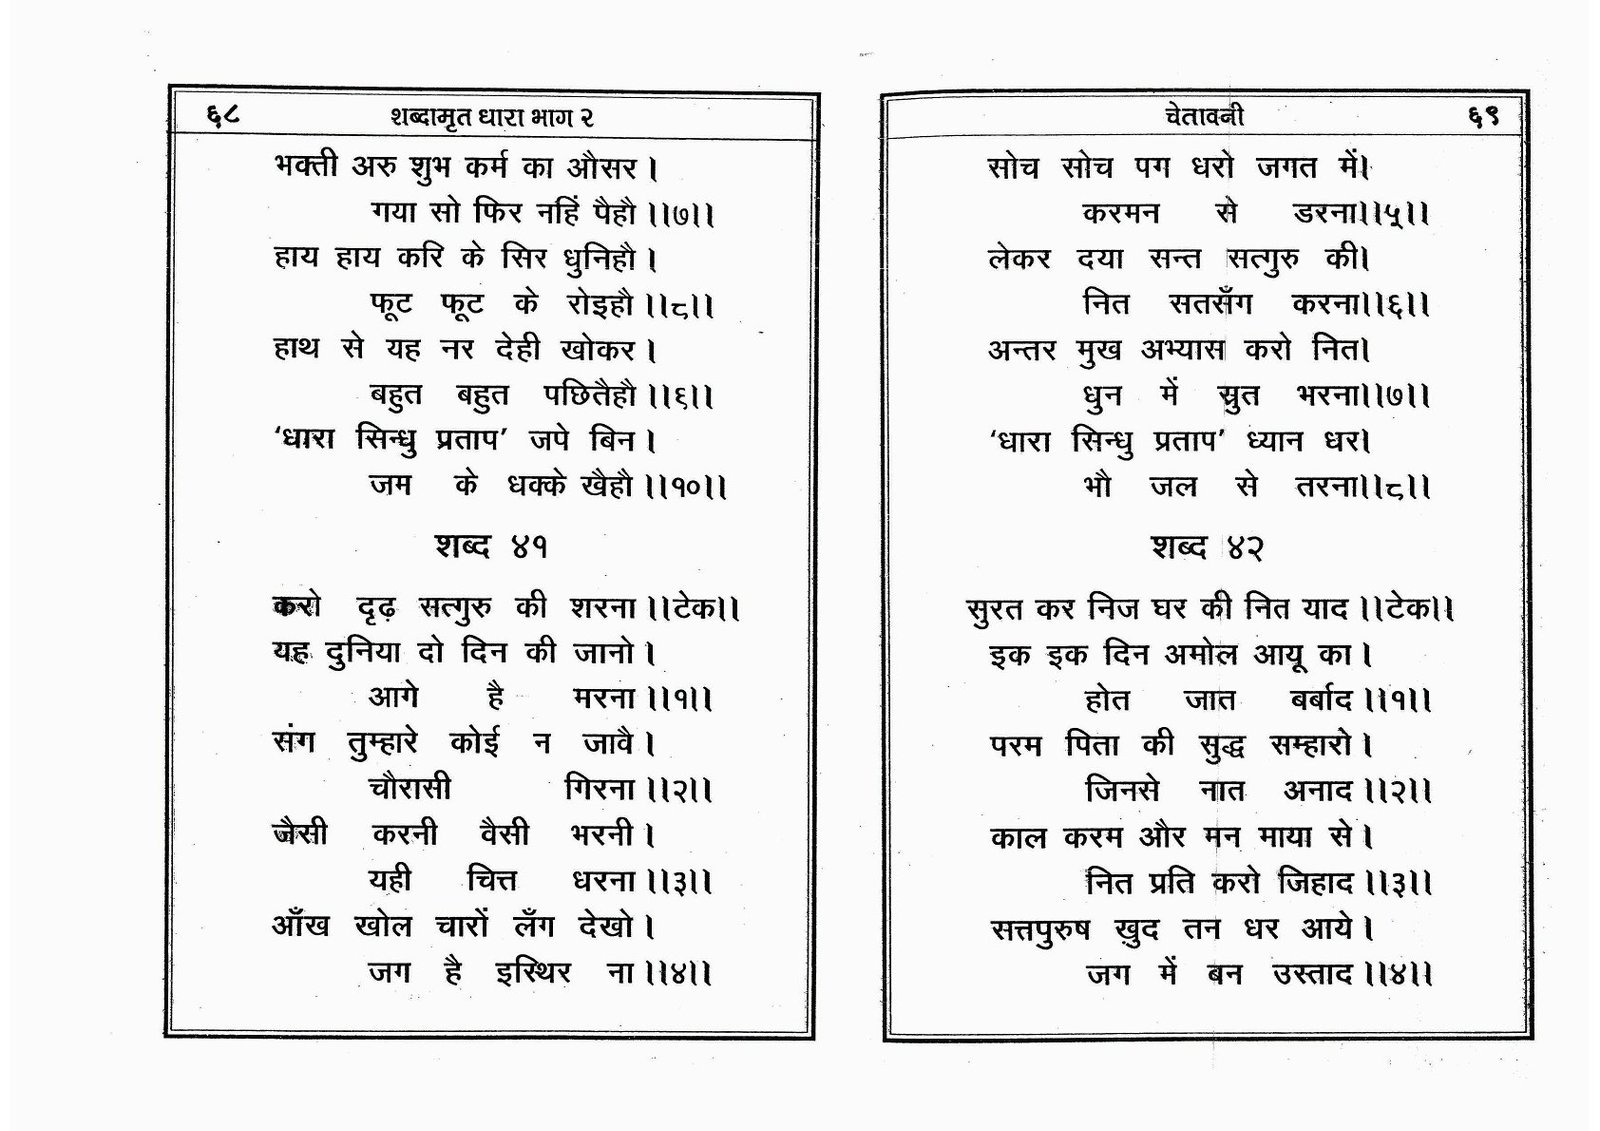 ६८ शब्दामृत धारा भाग २
भक्ती अरु शुभ कर्म का औसर ।
गया सो फिर नहिं पैहौ ।।७।।
हाय हाय करि के सिर धुनिहौ ।
फूट फूट के रोइहौ ।।८।।
हाथ से यह नर देही खोकर ।
बहुत बहुत पछितैहौ ।।९।।
‘धारा सिन्धु प्रताप’ जपे बिन ।
जम के धक्के खैहौ ।।१०।।
शब्द ४१
करो दृढ़ सत्गुरु की शरना ।।टेक।।
यह दुनिया दो दिन की जानो ।
आगे है मरना ।।१।।
संग तुम्हारे कोई न जावै ।
चौरासी गिरना ।।२।।
जैसी करनी वैसी भरनी ।
यही चित्त धरना ।।३।।
आँख खोल चारों लँग देखो ।
जग है इस्थिर ना ।।४।।
चेतावनी ६९
सोच सोच पग धरो जगत में।
करमन से डरना।।५।।
लेकर दया सन्त सत्गुरु की।
नित सतसँग करना।।६।।
अन्तर मुख अभ्यास करो नित।
धुन में स्रुत भरना।।७।।
‘धारा सिन्धु प्रताप’ ध्यान धर।
भौ जल से तरना।।८।।
शब्द ४२
सुरत कर निज घर की नित याद ।।टेक।।
इक इक दिन अमोल आयू का ।
होत जात बर्बाद ।।१।।
परम पिता की सुद्ध सम्हारो ।
जिनसे नात अनाद ।।२।।
काल करम और मन माया से ।
नित प्रति करो जिहाद ।।३।।
सत्तपुरुष ख़ुद तन धर आये ।
जग में बन उस्ताद ।।४।।